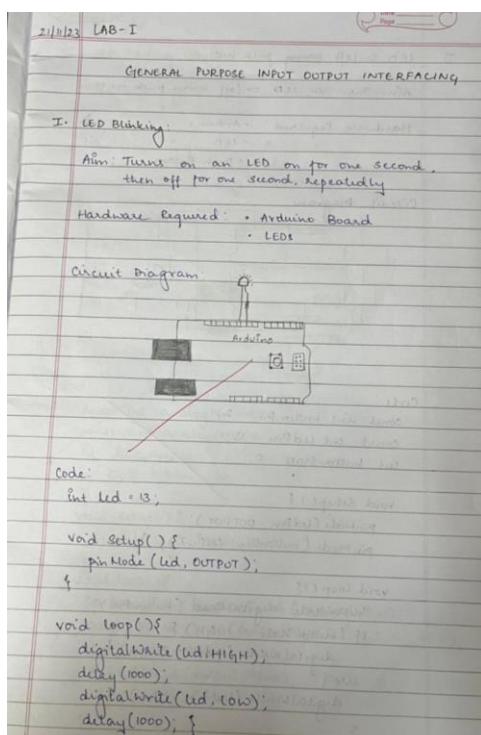 21/11/23 LAB-I
Page
GENERAL PURPOSE INPUT OUTPUT INTERFACING
I. LED Blinking:
Aim: Turns on an LED on for one second,
then off for one second, repeatedly
Hardware Required: • Arduino Board
• LEDs
Circuit Diagram
Arduino
Code:
int led = 13;
void setup() {
pinMode (led, OUTPUT);
}
void loop(){
digitalWrite(led, HIGH);
delay(1000);
digitalWrite(led, LOW);
delay(1000); }